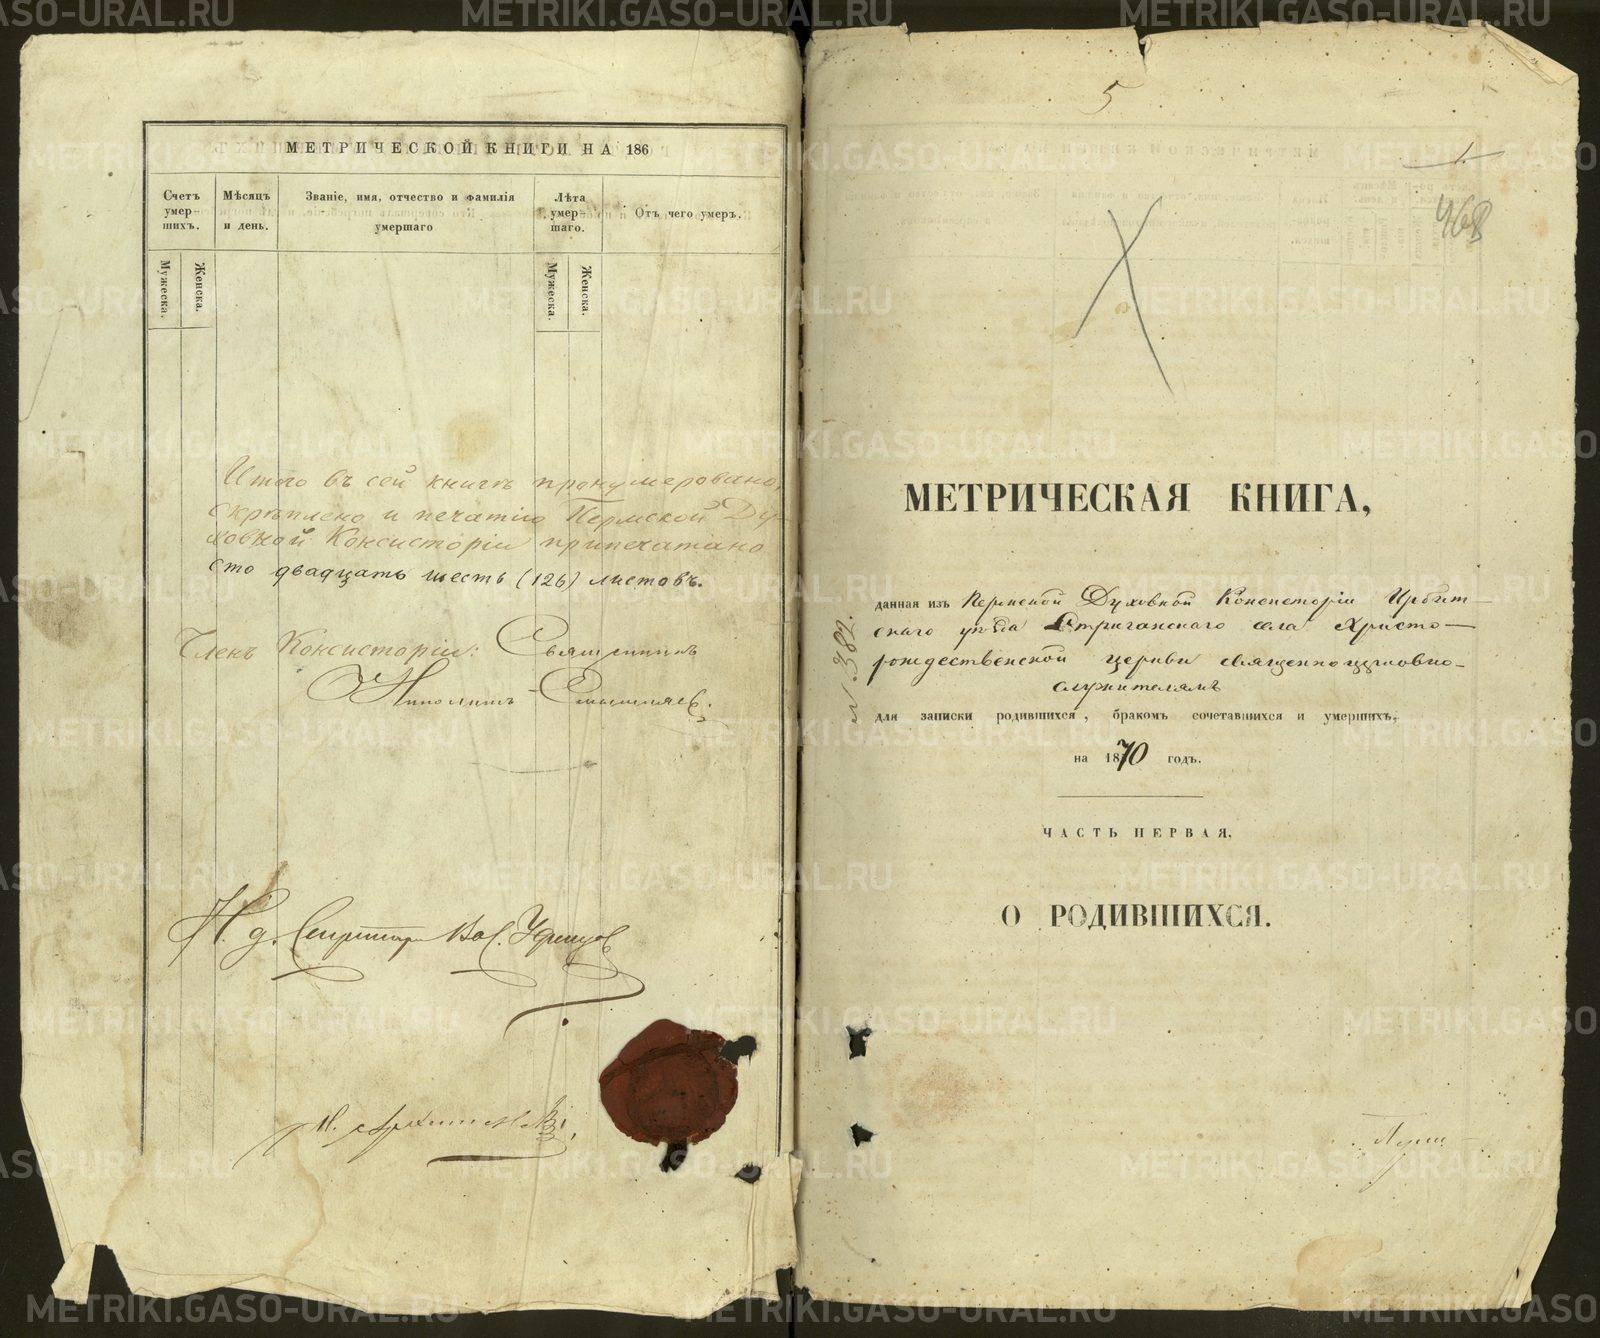 МЕТРИЧЕСКОЙ КНИГИ НА 186
Счетъ умер- шихъ.
Мѣсяцъ и день.
Званіе, имя, отчество и фамилія умершаго
Лѣта умер- шаго.
Отъ чего умеръ.
Мужеска.
Женска.
Мужеска.
Женска.
Итого въ сей книгѣ пронумеровано,
скрѣплено и печатію Пермской Ду-
ховной Консисторіи припечатано
сто двадцать шесть (126) листовъ.
Членъ Консисторіи: Священникъ
Ипполитъ
И. д. Секретаря Вас.
5
1
468
МЕТРИЧЕСКАЯ КНИГА,
данная изъ Пермской Духовной Консисторіи Ирбит-
скаго уѣзда Стриганскаго села Христо-
рождественской церкви священноцерковно-
служителямъ
для записки родившихся, бракомъ сочетавшихся и умершихъ,
на 1870 годъ.
ЧАСТЬ ПЕРВАЯ.
О РОДИВШИХСЯ.
382.
METRIKI.GASO-URAL.RU